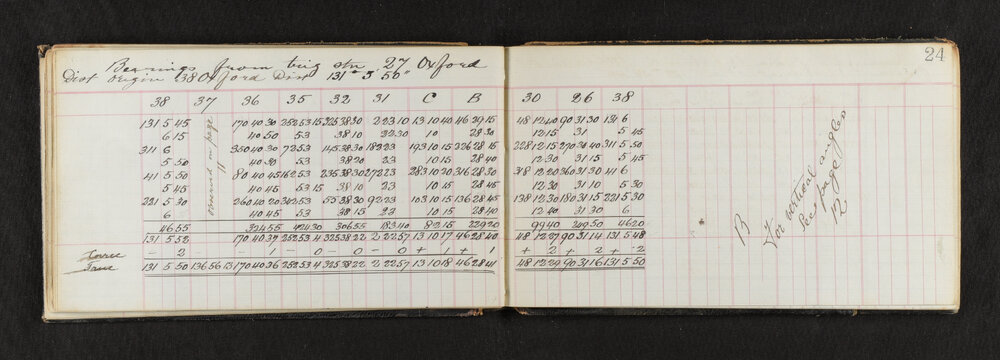 24
Bearings from trig stn 27 Oxford
Dist origin 38 Oxford Dist 131° 5' 50"
38 37 36 35 32 31 C B 30 26 38
131 5 45 170 40 30 252 53 15 325 38 30 2 23 10 13 10 40 46 29 15 48 12 40 90 31 30 131 6
6 15 40 50 53 38 10 22 30 10 28 30 12 15 31 5 45
311 6 350 40 30 72 53 145 38 30 182 23 193 10 15 226 28 15 228 12 15 270 30 40 311 5 50
5 50 40 30 53 38 20 23 10 15 28 40 12 30 31 15 5 45
41 5 50 80 40 45 162 53 235 38 30 272 23 283 10 20 316 28 30 318 12 20 360 31 30 41 6
5 45 40 45 53 15 38 10 23 10 15 28 45 12 30 31 10 5 30
221 5 30 260 40 20 342 53 55 38 30 92 23 103 10 15 136 28 45 138 12 30 180 31 15 221 5 30
6 40 45 53 38 15 23 10 15 28 40 12 40 31 30 6
46 55 324 55 424 30 306 55 183 40 82 15 229 20 99 40 249 50 46 20
131 5 52 170 40 37 252 53 4 325 38 22 2 22 57 13 10 17 46 28 40 48 12 27 90 31 14 131 5 48
- 2 1 0 0 0 + 1 + 1 + 2 + 2 + 2
131 5 50 136 56 13 170 40 36 252 53 4 325 38 22 2 22 57 13 10 18 46 28 41 48 12 29 90 31 16 131 5 50
observed on page
B
For vertical angles
see page
12